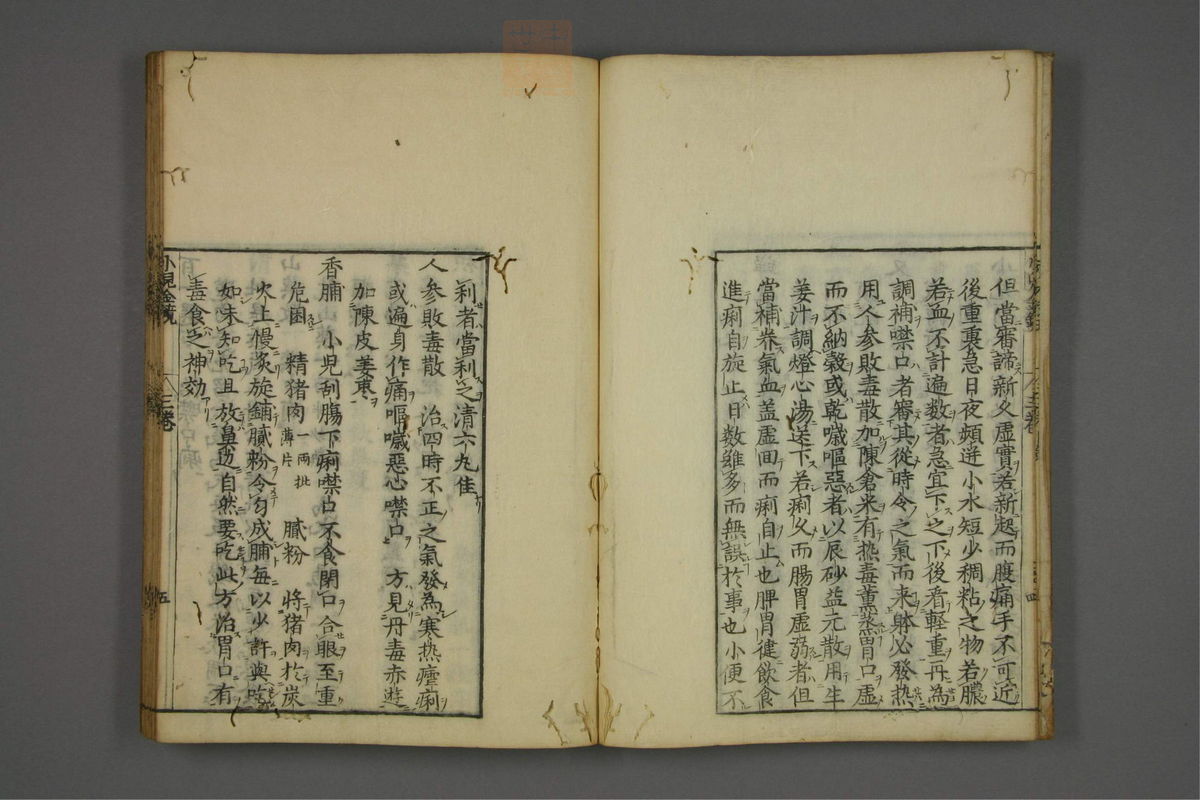 但當審諦新久虛實若新起而腹痛手不可近
後重裏急日夜頻迸小水短少稠粘之物若膿
若血不計遍数者急宜下之下後看輕重再為
調補噤口者審其從時令之氣而来躰必發热
用人参敗毒散加陳倉米有热毒薫蒸胃口虛
而不納穀或乾嘔惡者以辰砂益元散用生
姜汁調燈心湯送下若痢久而腸胃虛弱者但
當補养氣血盖虛回而痢自止也脾胃徤飲食
進痢自旋止日数雖多而無誤扵事也小便不
利者當利之清六丸佳
人参敗毒散　治四時不正之氣發為寒热瘧痢
或遍身作痛嘔噦惡心噤口　方見丹毒赤遊
加陳皮姜棗
香脯　小児刮腸下痢噤口不食閉口合眼至重
危困　精猪肉一兩批薄片　膩粉　將猪肉扵炭
火上慢炙旋鋪膩粉令匀成脯每以少許與吃
如味知吃且放鼻邊自然要吃此方治胃口有
毒食之神効
小兒金鏡　三卷　五